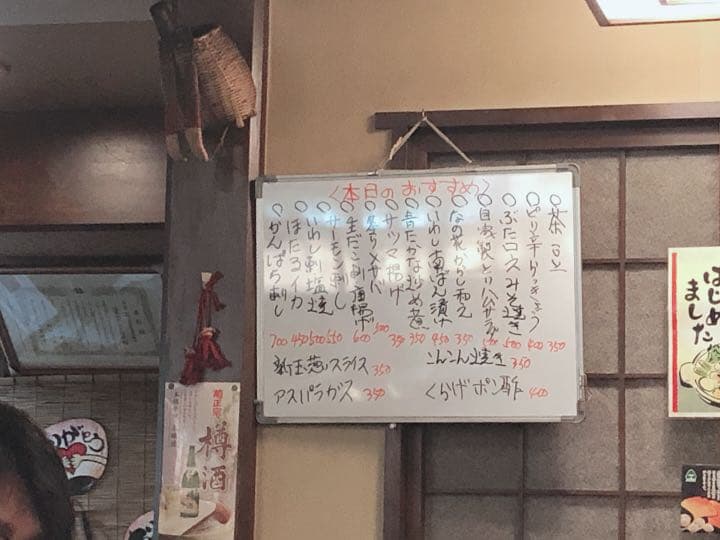 <本日のおすすめ>
○茶豆
○ピリ辛きゅうり
○ぶたロースみそ焼き
○自家製とりハムサラダ
○なの花からし和え
○いわし南ばん漬け
○青たかな炒め煮
○サツマ揚げ
○炙り〆サバ
○生だこ刺し 唐揚げ
○サーモン刺し
○いわし刺 塩焼
○ほたるイカ
○かんぱち刺し
350
400
500
350
450
350
350
500
600
550
500
450
700
新玉葱スライス 350
こんこん焼き 350
アスパラガス 350
くらげポン酢 400
はじめ
ました
菊正宗
樽酒
ありがとう